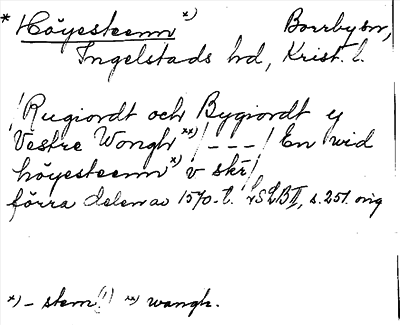 * Höyesteenn x) Borrby sn,
Ingelstads hd, Krist. l.
/Rugiordt och Bygiordt ej
Vestre Wongh xx)/ - - - / En wid
höyesteenn x) v skr/
förra delen av 1570-t. LSLB II, s. 251. orig
x) - stem (!) xx) wangh.